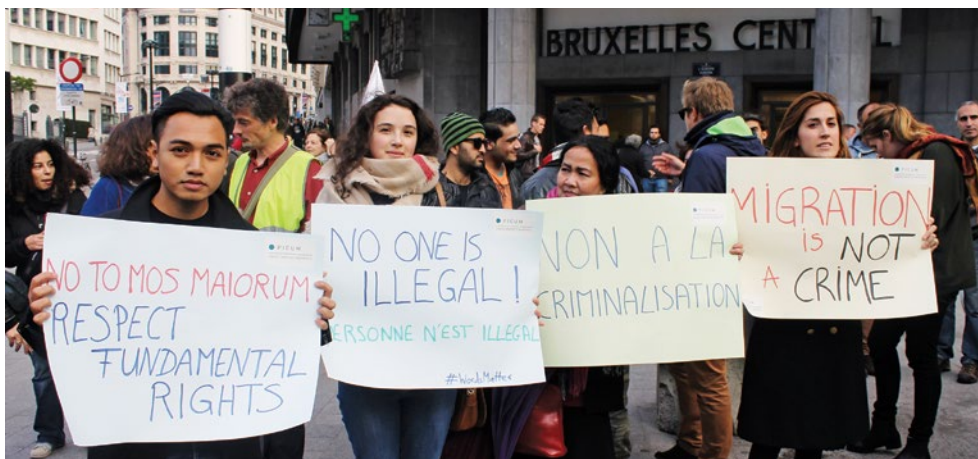 BRUXELLES CENT L
PICUM
NO TO MOS MAIORUM
RESPECT
FUNDAMENTAL
RIGHTS
PICUM
NO ONE IS
ILLEGAL !
ERSONNE N'EST ILLEGAL
#WordsMatter
NON A LA
CRIMINALISATION
MIGRATION
is NOT
A CRIME